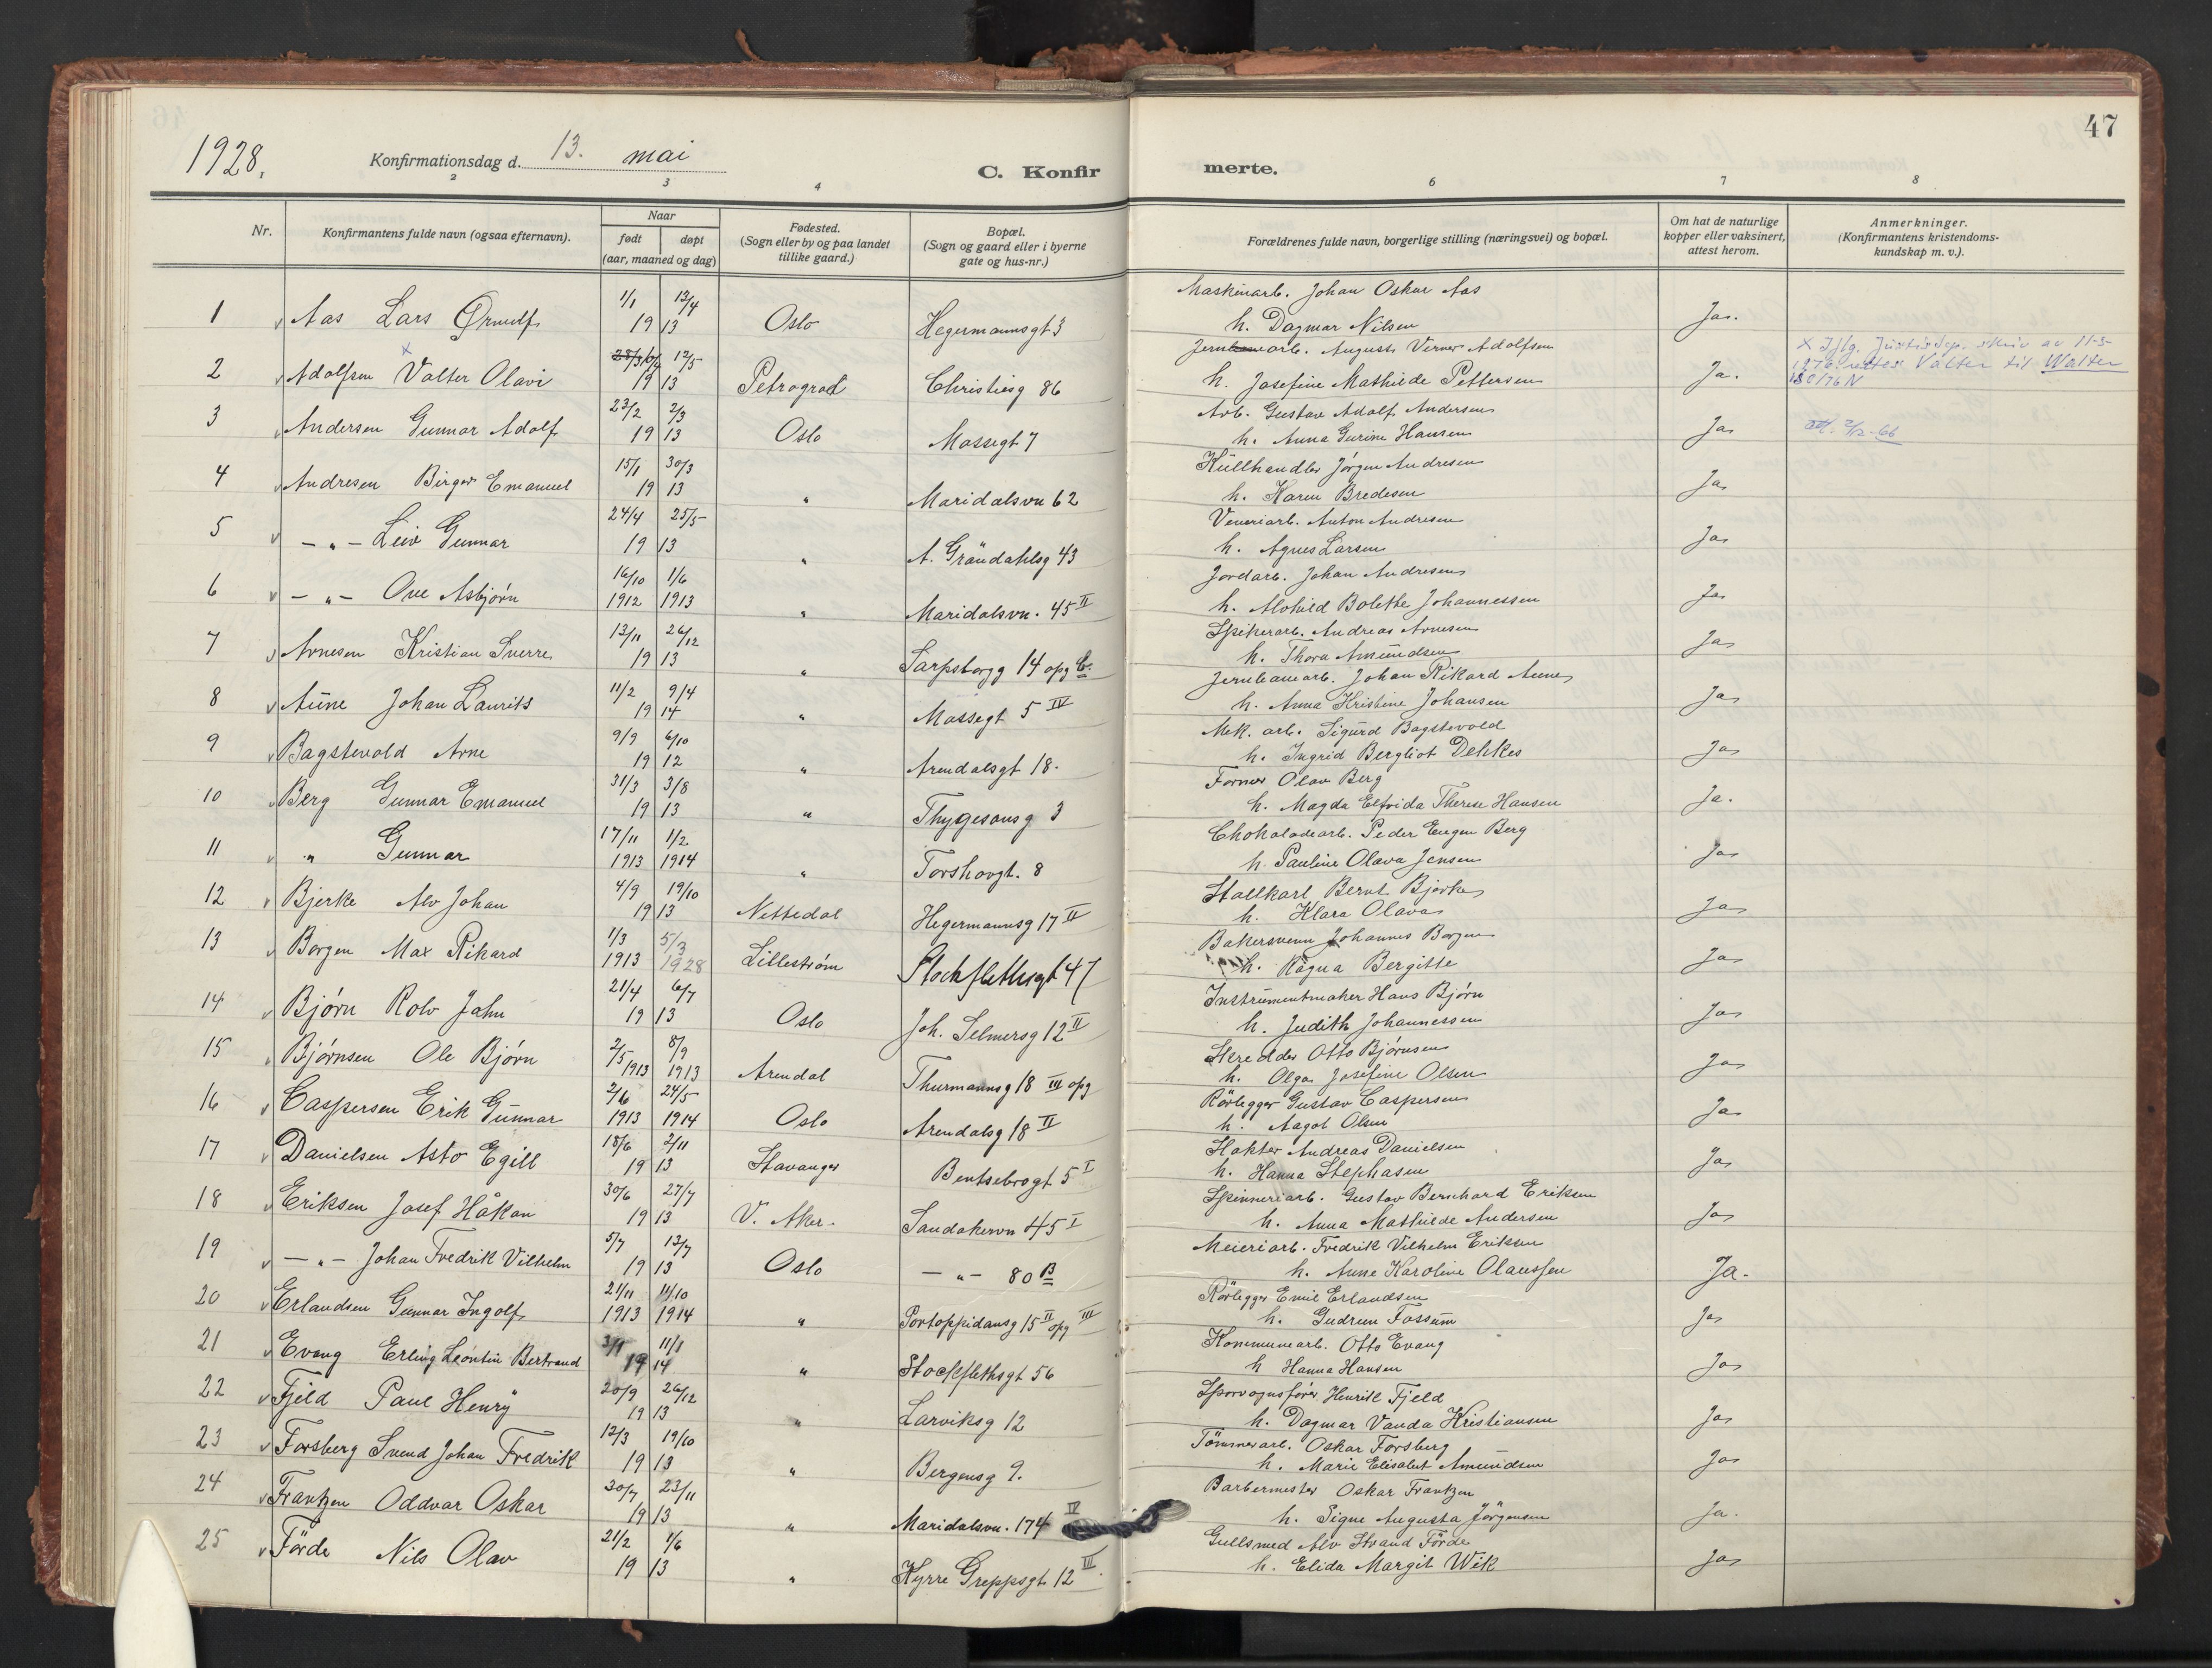 47
1928. Konfirmationsdag d. 13. mai C. Konfir merte.
2 3 4 6 7 8
Nr. Konfirmantens fulde navn (ogsaa efternavn). Naar født døpt (aar, maaned og dag) Fødested. (Sogn eller by og paa landet tillike gaard.) Bopæl. (Sogn og gaard eller i byerne gate og hus-nr.) Forældrenes fulde navn, borgerlige stilling (næringsvei) og bopæl. Om hat de naturlige kopper eller vaksinert, attest herom. Anmerkninger. (Konfirmantens kristendoms- kundskap m. v.).
1 Aas Lars Ørnulf 1/1 13/4 1913 Oslo Hegermannsgt 3 Maskinarb. Johan Oskar Aas
h. Dagmar Nilsen Ja.
2 Adolfsen Valter Olavi 12/5 1913 Petrograd Christiesg 86 Jernbanearb. August Verner Adolfsen
h. Josefine Mathilde Pettersen Ja. x Iflg. Justisdep. skriv av 11-5-
1976 rettes Valter til Walter
180/76 N
3 Andersen Gunnar Adolf 23/2 2/3 1913 Oslo Mossegt 7 Arb. Gustav Adolf Andersen
h. Anna Gurine Hansen Ja att. 2/12-66
4 Andresen Birger Emanuel 15/1 30/3 1913 " Maridalsvn 62 Kullhandler Jørgen Andresen
h. Karen Bredesen Ja
5 -"- Leiv Gunnar 24/4 25/5 1913 " A. Gröndahlsg 43 Veveriarb. Anton Andresen
h. Agnes Larsen Ja
6 -"- Ove Asbjørn 16/10 1/6 1912 1913 " Maridalsvn. 45 II Jordarb. Johan Andresen
h. Alvhild Bolette Johannessen Ja
7 Arnesen Kristian Sverre 13/11 26/12 1913 " Sarpsborgg 14 opg b. Spikerarb. Andreas Arnesen
h. Thora Amundsen Ja
8 Aune Johan Laurits 11/2 9/4 1914 " Mossegt 5 IV Jernbanearb. Johan Rikard Aune
h. Anna Kristine Johansen Ja
9 Bagstevold Arne 9/9 6/10 1912 " Arendalsgt 18. Mek. arb. Sigurd Bagstevold
h. Ingrid Bergliot Dehkes Ja
10 Berg Gunnar Emanuel 31/3 3/8 1913 " Thygesonsg 3 Former Olav Berg
h. Magda Elfrida Therese Hansen Ja.
11 " Gunnar 17/11 1/2 1913 1914 " Torshovgt. 8 Chokoladearb. Peder Eugen Berg
h. Pauline Olava Jensen Ja
12 Bjerke Alv Johan 4/9 19/10 1913 Nittedal Hegermannsg 17 II Stallkarl Bernt Bjerke
h. Klara Olava Ja
13 Borgen Max Rikard 1/3 5/3 1913 1928 Lillestrøm Stockflethsgt 47 Bakersvenn Johannes Borgen
h. Ragna Bergitte Ja
14 Bjørn Rolv Jahn 21/4 6/7 1913 Oslo Joh. Selmersg 12 II Instrumentmaker Hans Bjørn
h. Judith Johannessen Ja
15 Bjørnsen Ole Bjørn 2/5 1913 8/9 1913 Arendal Thurmannsg 18 III opg Skredder Otto Bjørnsen
h. Olga Josefine Olsen Ja
16 Caspersen Erik Gunnar 2/6 24/5 1913 1914 Oslo Arendalsg 18 II Rørlegger Gustav Caspersen
h. Aagot Olsen Ja
17 Danielsen Asto Egill 18/6 2/11 1913 Stavanger Bentsebrogt 5 I Slakter Andreas Danielsen
h. Hanna Stephasen Ja
18 Eriksen Josef Håkon 30/6 27/7 1913 V. Aker. Sandakervn 45 I Spinneriarb. Gustav Bernhard Eriksen
h. Anna Mathilde Andersen Ja
19 -"- Johan Fredrik Vilhelm 5/7 13/7 1913 Oslo -"- 80 B Meieriarb. Fredrik Vilhelm Eriksen
h. Anne Karoline Olaussen Ja.
20 Erlandsen Gunnar Ingolf 21/11 11/10 1913 1914 " Pontoppidansg 15 II opg III Rørlegger Emil Erlandsen
h. Gudrun Fossum Ja
21 Evang Erling Leontin Bertrand 3/1 11/1 1914 " Stockflethsgt 56 Kommunearb. Otto Evang
h Hanna Hansen Ja
22 Fjeld Paul Henry 20/9 26/12 1913 " Larviksg 12 Sporvognsfører Henrik Fjeld
h. Dagmar Vanda Kristiansen Ja
23 Forsberg Svend Johan Fredrik 12/3 19/10 1913 " Bergensg 9. Tømmerarb. Oskar Forsberg
h. Marie Elisabet Amundsen Ja
24 Frantzen Oddvar Oskar 30/7 23/11 1913 " Maridalsvn. 174 IV Barbermester Oskar Frantzen
h. Signe Augusta Jörgensen Ja.
25 Förde Nils Olav 21/2 1/6 1913 " Kyrre Greppsgt 12 III. Gullsmed Alv Strand Förde
h. Elida Margit Wik Ja